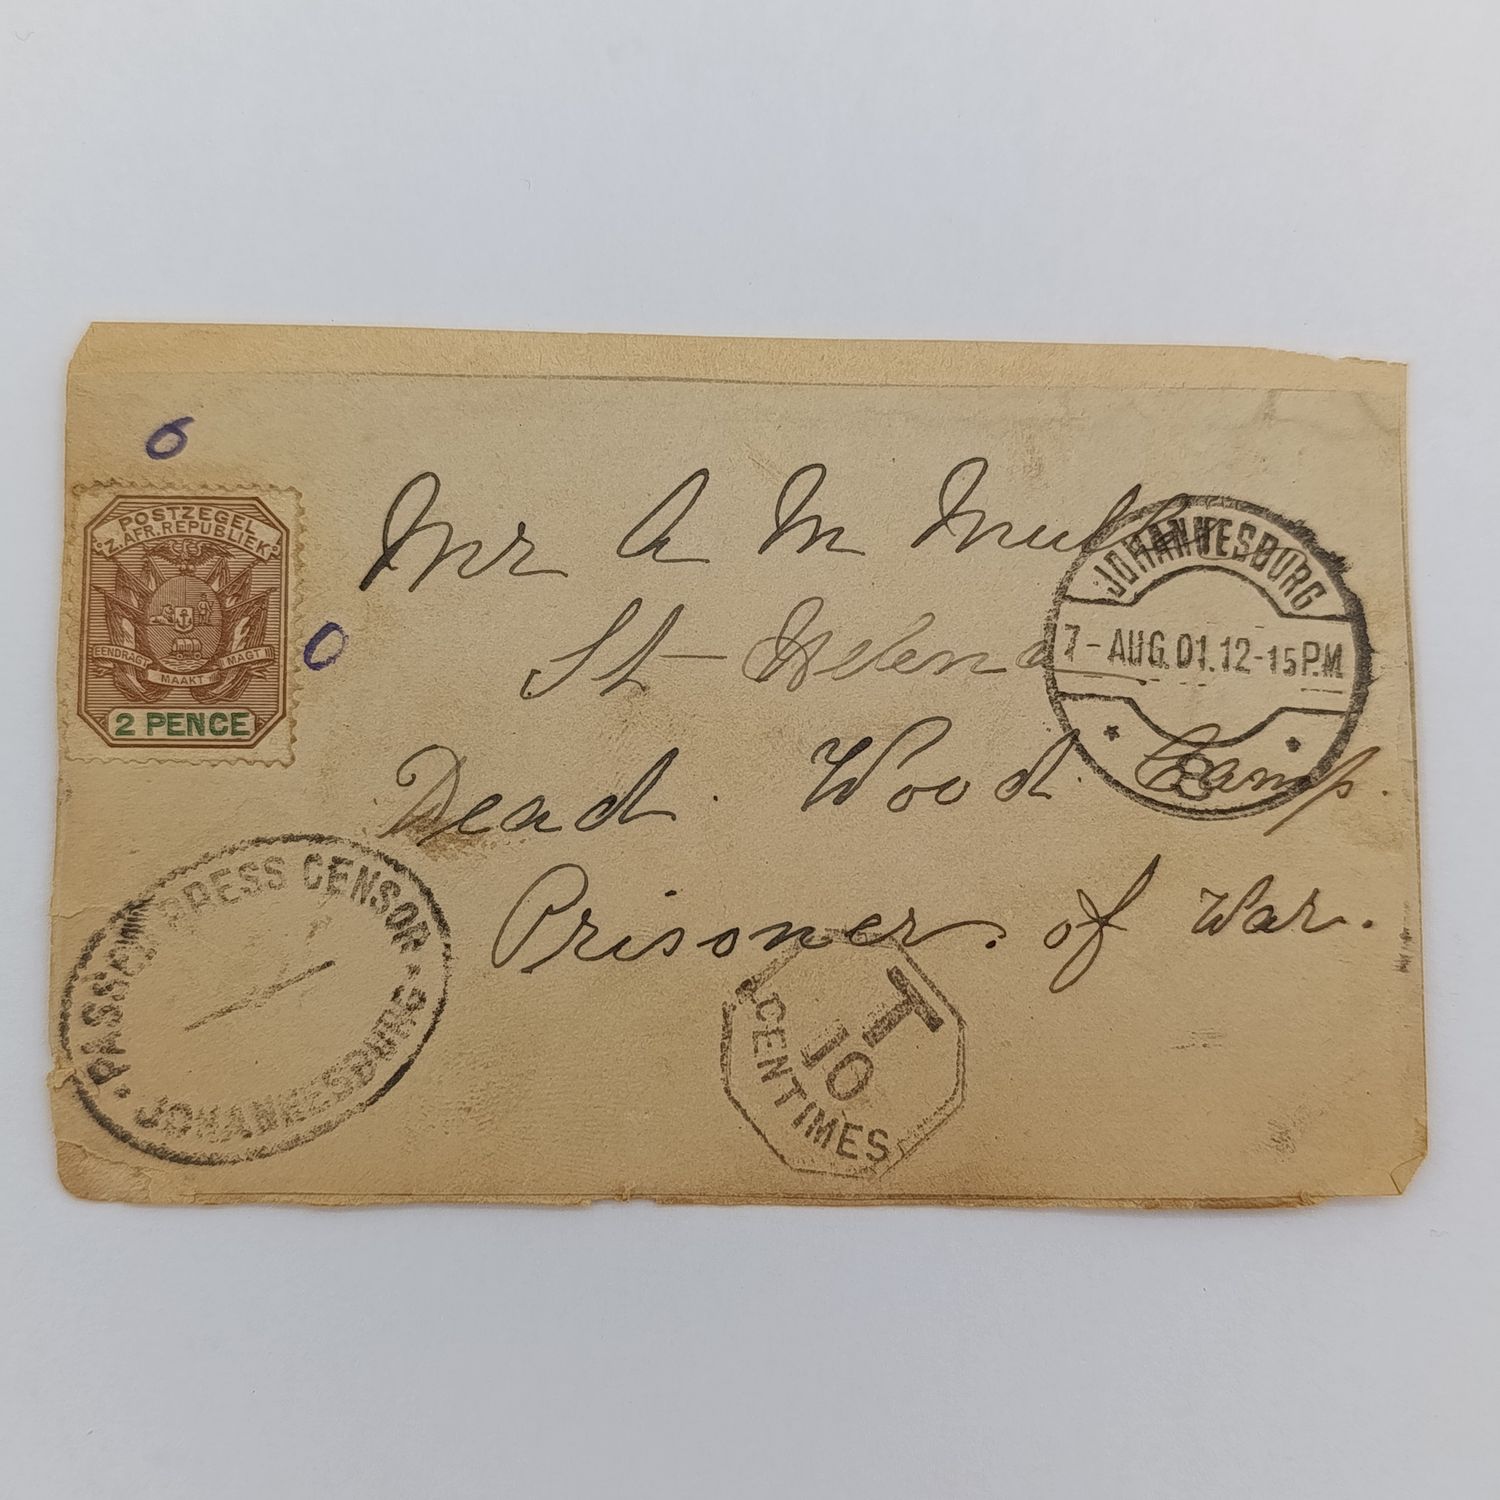 6
POSTZEGEL
Z.AFR.REPUBLIEK
EENDRAGT MAAKT MAGT
2 PENCE
0
Mr A M
St Helena
Dead Wood Camp.
Prisoner of War.
JOHANNESBURG
7-AUG.01.12-15P.M
8
PASSED PRESS CENSOR
JOHANNESBURG
T
10
CENTIMES